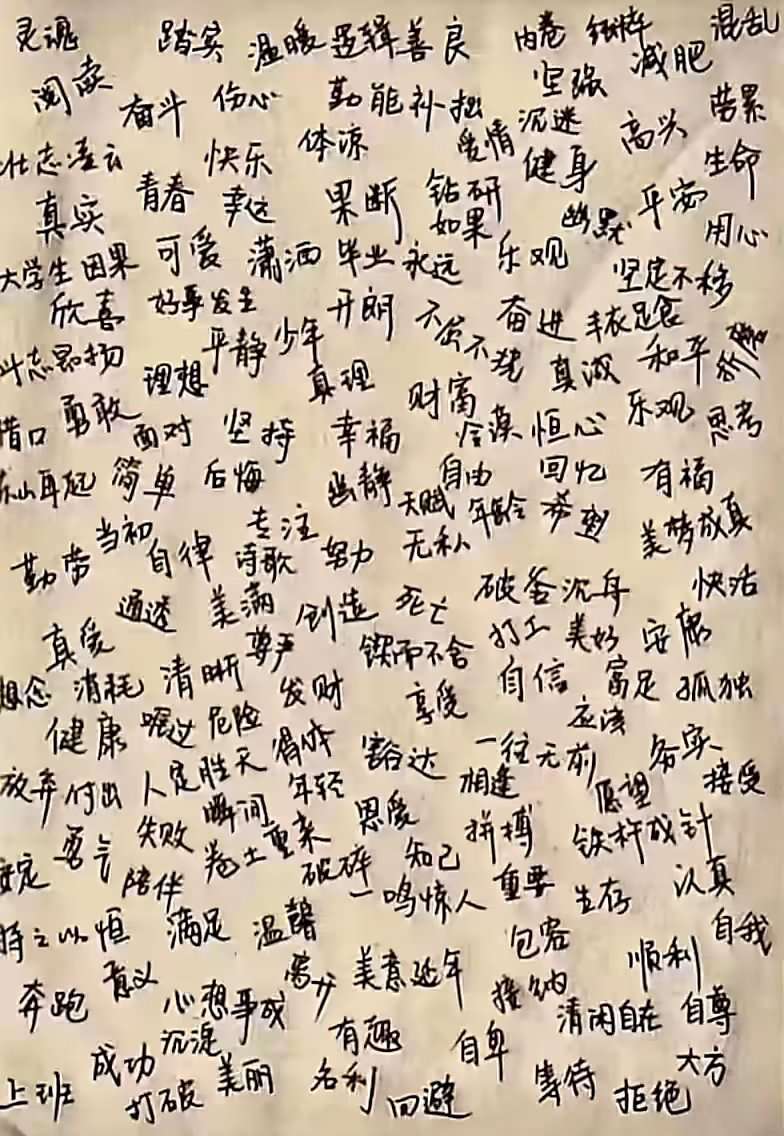 灵魂 踏实 温暖 逻辑 善良 内卷 纯粹 混乱
阅读 奋斗 伤心 勤能补拙 坚强 减肥 劳累
壮志凌云 快乐 体谅 爱情 沉迷 健身 高兴 生命
真实 青春 幸运 果断 钻研 如果 幽默 平安 用心
大学生 因果 可爱 潇洒 毕业 永远 乐观 坚定不移
欣喜 好事发生 平静 少年 开朗 不屈不挠 奋进 丰衣足食
斗志昂扬 理想 真理 财富 真诚 和平
借口 勇敢 面对 坚持 幸福 冷漠 恒心 乐观 思考
东山再起 简单 后悔 幽静 自由 回忆 有福
当初 专注 天赋 年龄 美梦成真
勤劳 自律 诗歌 努力 无私
真爱 通透 美满 创造 死亡 破釜沉舟 快活
尊严 锲而不舍 打工 美好 安康
想念 消耗 清晰 发财 享受 自信 富足 孤独
健康 嘱过 危险 得体 豁达 一往无前 应该 务实
放弃 付出 人定胜天 年轻 相逢 愿望 接受
安定 勇气 失败 瞬间 卷土重来 恩爱 拼搏 铁杵成针
陪伴 破碎 知己 一鸣惊人 重要 生存 认真
持之以恒 满足 温馨 包容 自我
奔跑 意义 心想事成 美意延年 接纳 顺利
沉淀 有趣 清闲自在 自尊
上班 成功 打破 美丽 名利 回避 自卑 等待 拒绝 大方